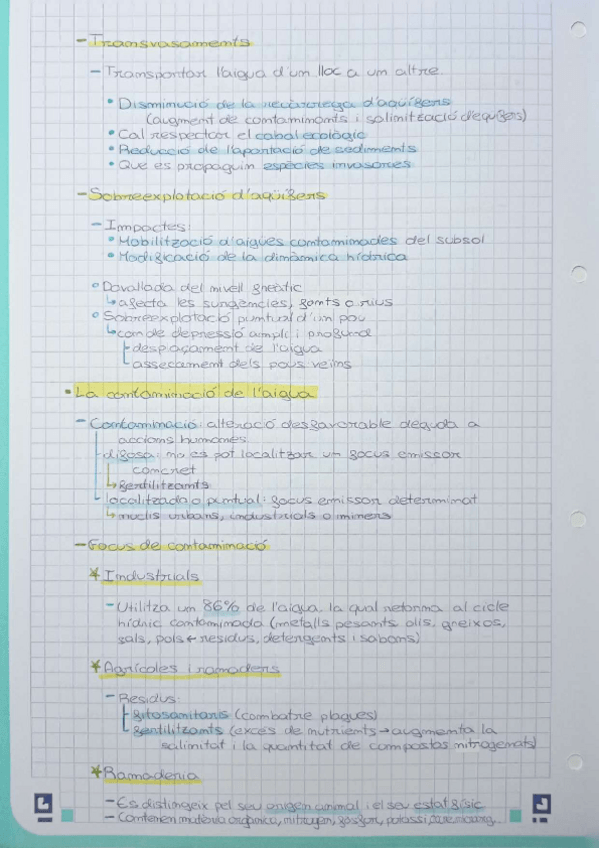 - Transvasaments
- Transportar l'aigua d'un lloc a un altre.
• Disminució de la recàrrega d'aqüífers
(augment de contaminants i salinització d'aqüífers)
• Cal respectar el cabal ecològic
• Reducció de l'aportació de sediments
• Que es propaguin espècies invasores
- Sobreexplotació d'aqüífers
- Impactes:
• Mobilització d'aigües contaminades del subsol
• Modificació de la dinàmica hídrica
° Davallada del nivell freàtic
↳ afecta les surgències, fonts o rius
° Sobreexplotació puntual d'un pou
↳ con de depressió ampli i profund
desplaçament de l'aigua
assecament dels pous veïns
• La contaminació de l'aigua
- Contaminació: alteració desfavorable deguda a
accions humanes
difosa: no es pot localitzar un focus emissor
concret
↳ fertilitzants
localitzada o puntual: focus emissor determinat
↳ nuclis urbans, industrials o miners
- Focus de contaminació
* Industrials
- Utilitza un 86% de l'aigua, la qual retorna al cicle
hídric contaminada (metalls pesants, olis, greixos,
sals, pols ← residus, detergents i sabons)
* Agrícoles i ramaders
- Residus:
fitosanitaris (combatre plagues)
fertilitzants (excés de nutrients → augmenta la
salinitat i la quantitat de compostos nitrogenats)
* Ramaderia
- Es distingeix pel seu origen animal i el seu estat físic
- Contenen matèria orgànica, nitrogen, fòsfor, potassi,